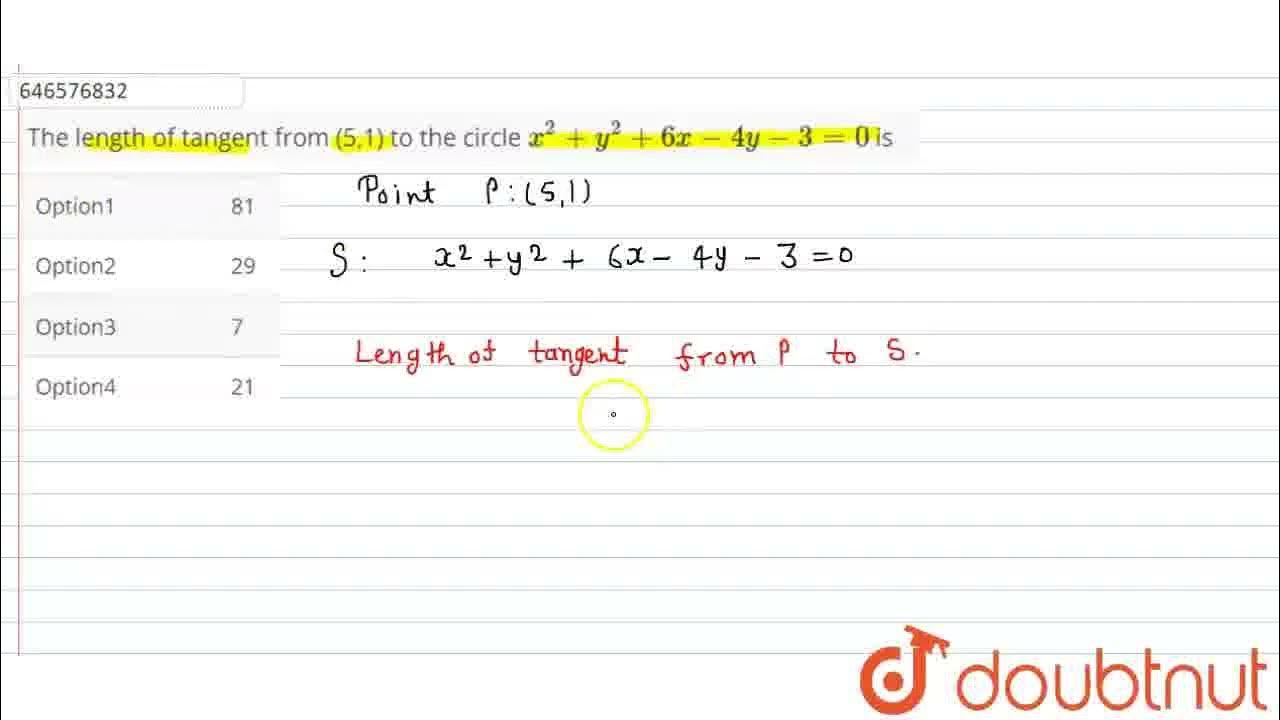 646576832
The length of tangent from (5,1) to the circle x² + y² + 6x − 4y − 3 = 0 is
Option1 81
Option2 29
Option3 7
Option4 21
Point P : (5,1)
S : x² + y² + 6x − 4y − 3 = 0
Length of tangent from P to S.
doubtnut